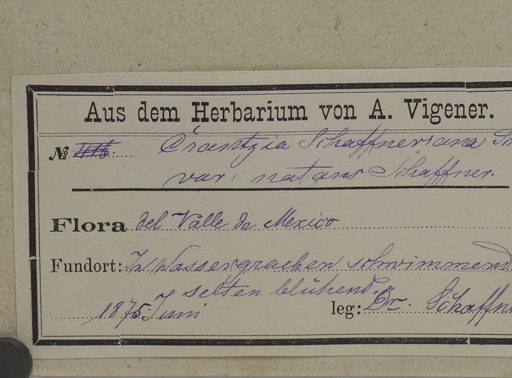 Aus dem Herbarium von A. Vigener.
№ Crantzia Schaffneriana
var: natans Schaffner.
Flora del Valle de Mexico
Fundort: In Wassergraeben schwimmend
selten blühend.
1875. Juni leg: Dr. Schaffn